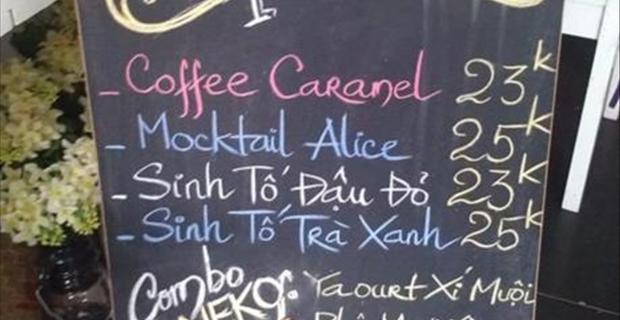 - Coffee Caramel 23k
- Mocktail Alice 25k
- Sinh Tố Đậu Đỏ 23k
- Sinh Tố Trà Xanh 25k
Combo Yaourt Xí Muội
NEKO: